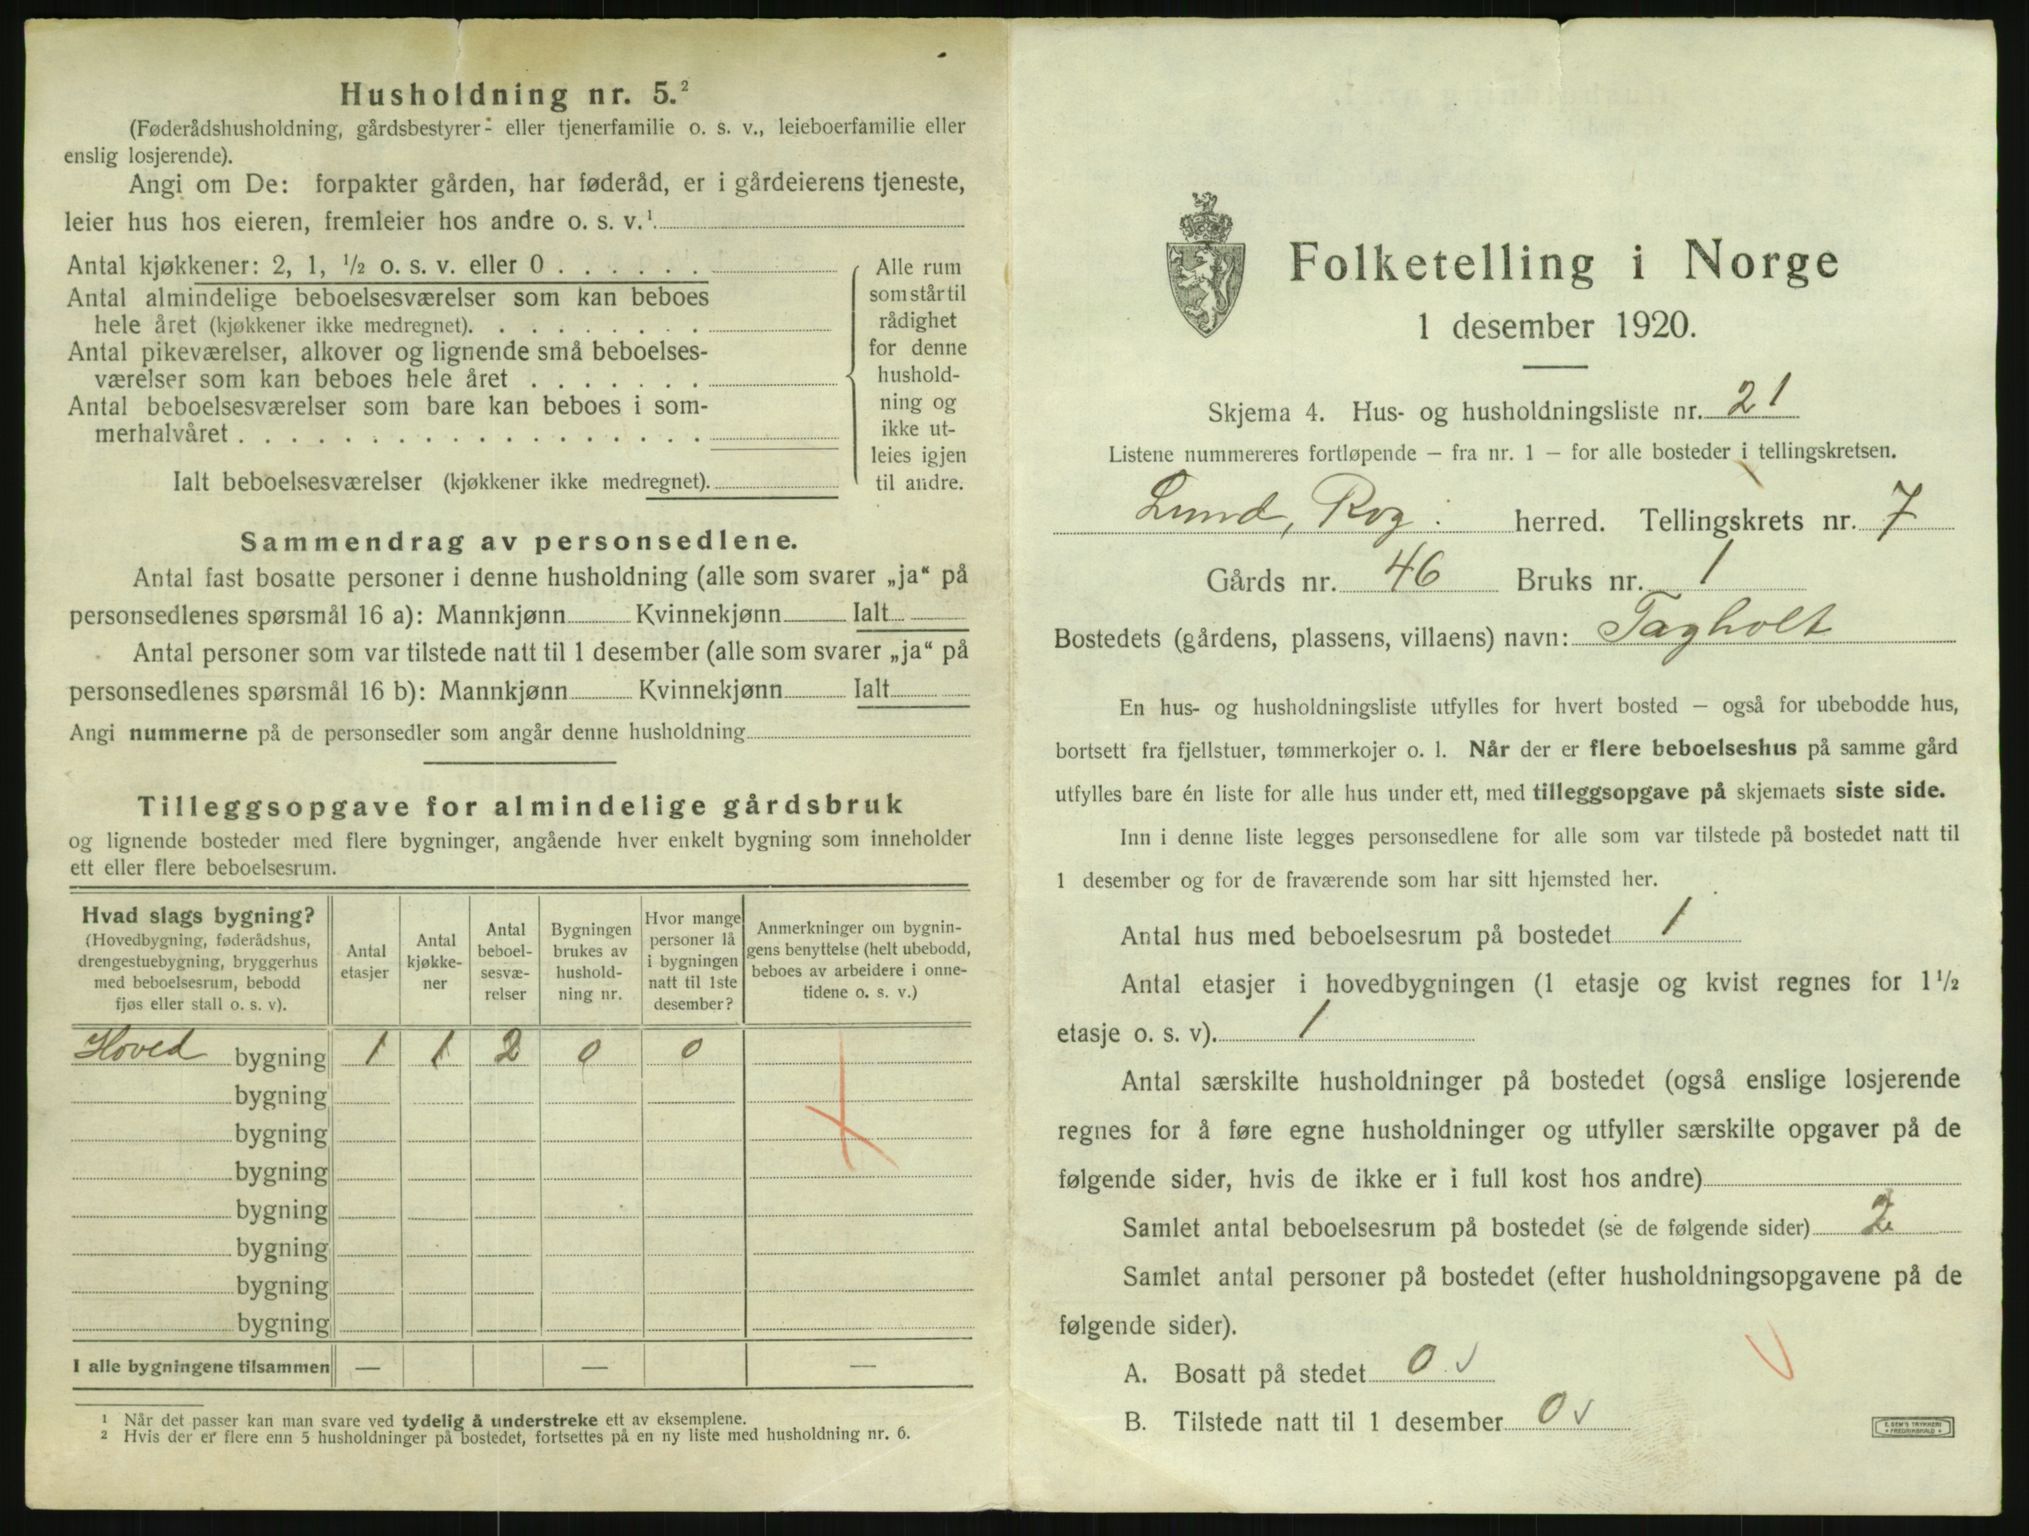 Husholdning nr. 5.²
(Føderådshusholdning, gårdsbestyrer- eller tjenerfamilie o. s. v., leieboerfamilie eller
enslig losjerende).
Angi om De: forpakter gården, har føderåd, er i gårdeierens tjeneste,
leier hus hos eieren, fremleier hos andre o. s. v.¹
Antal kjøkkener: 2, 1, ½ o. s. v. eller 0 . . . . . .
Antal almindelige beboelsesværelser som kan beboes
hele året (kjøkkener ikke medregnet). . . . . . . . .
Antal pikeværelser, alkover og lignende små beboelses-
værelser som kan beboes hele året . . . . . . .
Antal beboelsesværelser som bare kan beboes i som-
merhalvåret . . . . . . . . . . . . . . . . . .
Ialt beboelsesværelser (kjøkkener ikke medregnet).
Alle rum
som står til
rådighet
for denne
hushold-
ning og
ikke ut-
leies igjen
til andre.
Sammendrag av personsedlene.
Antal fast bosatte personer i denne husholdning (alle som svarer „ja“ på
personsedlenes spørsmål 16 a): Mannkjønn Kvinnekjønn Ialt
Antal personer som var tilstede natt til 1 desember (alle som svarer „ja“ på
personsedlenes spørsmål 16 b): Mannkjønn Kvinnekjønn Ialt
Angi nummerne på de personsedler som angår denne husholdning
Tilleggsopgave for almindelige gårdsbruk
og lignende bosteder med flere bygninger, angående hver enkelt bygning som inneholder
ett eller flere beboelsesrum.
Hvad slags bygning?
(Hovedbygning, føderådshus,
drengestuebygning, bryggerhus
med beboelsesrum, bebodd
fjøs eller stall o. s. v).
Antal
etasjer
Antal
kjøkke-
ner
Antal
beboel-
sesvæ-
relser
Bygningen
brukes av
hushold-
ning nr.
Hvor mange
personer lå
i bygningen
natt til 1ste
desember?
Anmerkninger om bygnin-
gens benyttelse (helt ubebodd,
beboes av arbeidere i onne-
tidene o. s. v.)
Hoved bygning 1 1 2 0 0
bygning
bygning
bygning
bygning
bygning
bygning
bygning
I alle bygningene tilsammen — — —
¹ Når det passer kan man svare ved tydelig å understreke ett av eksemplene.
² Hvis der er flere enn 5 husholdninger på bostedet, fortsettes på en ny liste med husholdning nr. 6.
Folketelling i Norge
1 desember 1920.
Skjema 4. Hus- og husholdningsliste nr. 21
Listene nummereres fortløpende — fra nr. 1 — for alle bosteder i tellingskretsen.
Lund, Rog. herred. Tellingskrets nr. 7
Gårds nr. 46 Bruks nr. 1
Bostedets (gårdens, plassens, villaens) navn: Tagholt
En hus- og husholdningsliste utfylles for hvert bosted — også for ubebodde hus,
bortsett fra fjellstuer, tømmerkojer o. l. Når der er flere beboelseshus på samme gård
utfylles bare én liste for alle hus under ett, med tilleggsopgave på skjemaets siste side.
Inn i denne liste legges personsedlene for alle som var tilstede på bostedet natt til
1 desember og for de fraværende som har sitt hjemsted her.
Antal hus med beboelsesrum på bostedet 1
Antal etasjer i hovedbygningen (1 etasje og kvist regnes for 1½
etasje o. s. v). 1
Antal særskilte husholdninger på bostedet (også enslige losjerende
regnes for å føre egne husholdninger og utfyller særskilte opgaver på de
følgende sider, hvis de ikke er i full kost hos andre)
Samlet antal beboelsesrum på bostedet (se de følgende sider) 2
Samlet antal personer på bostedet (efter husholdningsopgavene på de
følgende sider).
A. Bosatt på stedet 0 v
B. Tilstede natt til 1 desember 0 v
E. SEM'S TRYKKERI
FREDRIKSHALD